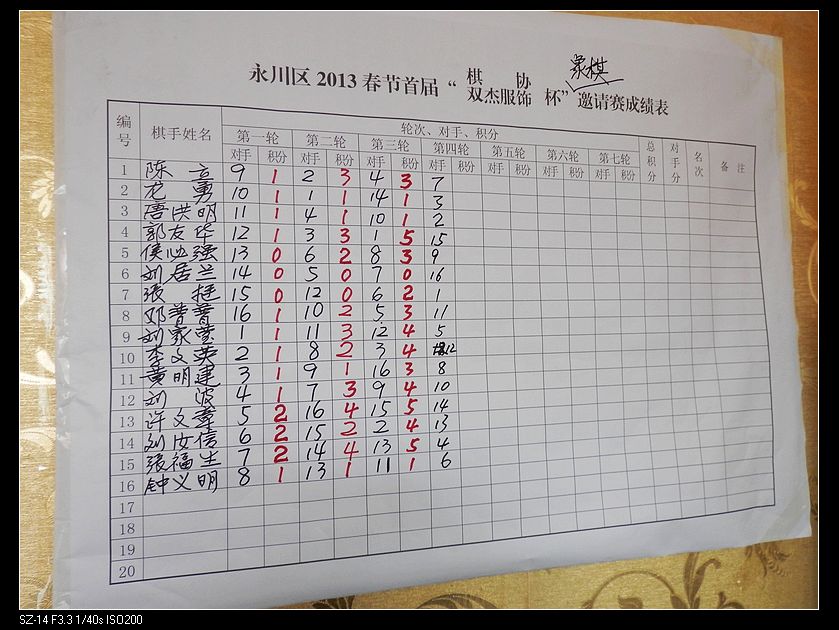 象棋
永川区 2013 春节首届“棋协 双杰服饰 杯”邀请赛成绩表
编号 棋手姓名 轮次、对手、积分 总积分 对手分 名次 备注
第一轮 第二轮 第三轮 第四轮 第五轮 第六轮 第七轮
对手 积分 对手 积分 对手 积分 对手 积分 对手 积分 对手 积分 对手 积分
1 陈立 9 1 2 3 4 3 7
2 龙勇 10 1 1 1 14 1 3
3 唐洪明 11 1 4 1 10 1 2
4 郭友华 12 1 3 3 1 5 15
5 侯必强 13 0 6 2 8 3 9
6 刘居兰 14 0 5 0 7 0 16
7 张挺 15 0 12 0 6 2 1
8 邓普普 16 1 10 2 5 3 11
9 刘家莹 1 1 11 3 12 4 5
10 李文英 2 1 8 2 3 4 12
11 黄明建 3 1 9 1 16 3 8
12 刘波 4 1 7 3 9 4 10
13 许文章 5 2 16 4 15 5 14
14 刘汝信 6 2 15 2 2 4 13
15 张福生 7 2 14 4 13 5 4
16 钟义明 8 1 13 1 11 1 6
17
18
19
20
SZ-14 F3.3 1/40s ISO200